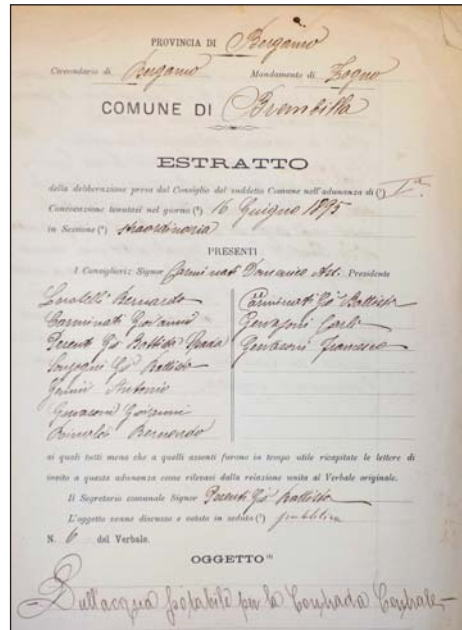 PROVINCIA DI Bergamo
Circondario di Bergamo Mandamento di Zogno
COMUNE DI Brembilla
ESTRATTO
della deliberazione presa dal Consiglio del suddetto Comune nell'adunanza di (¹) Iª
Convocazione tenutasi nel giorno (²) 16 Giugno 1895
in Sessione (³) straordinaria
PRESENTI
I Consiglieri: Signor Carminati Domenico Ass. Presidente
Locatelli Bernardo
Carminati Giovanni
Pesenti Gio Battista
Gio Battista
Antonio
Gervasoni
Bernardo
Carminati Gio Battista
Gervasoni Carlo
Gervasoni Francesco
ai quali tutti meno che a quelli assenti furono in tempo utile ricapitate le lettere di
invito a questa adunanza come rilevasi dalla relazione unita al Verbale originale.
Il Segretario comunale Signor Pesenti Gio Battista
L'oggetto venne discusso e votato in seduta (⁴) pubblica
N. 6 del Verbale.
OGGETTO
Sull'acqua potabile per la Contrada Centrale